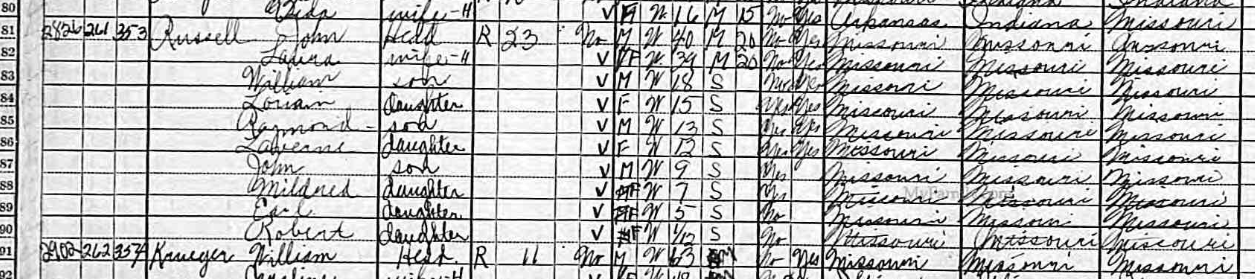 80 wife-H V F W 16 M 15 No Yes Arkansas Indiana Missouri
81 2826 261 353 Russell John Head R 23 No M W 40 M 20 No Yes Missouri Missouri Missouri
82 Laura wife-H V F W 39 M 20 No Yes Missouri Missouri Missouri
83 William son V M W 18 S Missouri Missouri Missouri
84 daughter V F W 15 S Yes Yes Missouri Missouri Missouri
85 Raymond son V M W 13 S Yes Yes Missouri Missouri Missouri
86 Laverne daughter V F W 12 S Yes Yes Missouri Missouri Missouri
87 John son V M W 9 S Yes Missouri Missouri Missouri
88 Mildred daughter V F W 7 S Yes Missouri Missouri Missouri
89 Earl daughter V F W 5 S No Missouri Missouri Missouri
90 Robert daughter V F W S No Missouri Missouri Missouri
91 2902 262 354 Krueger William Head R 11 No M W 63 No Yes Missouri Missouri Missouri
92